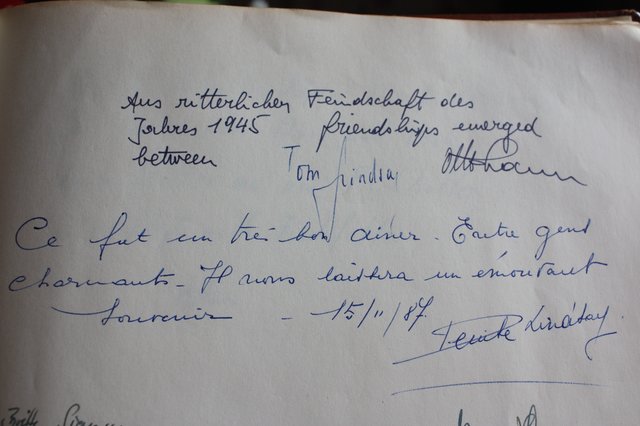 Aus ritterlicher Feindschaft des
Jahres 1945 friendships emerged
between Tom Lindsay
Ce fut un très bon dîner. Entre gens
charmants - Il nous laissera un émouvant
Souvenir - 15/11/87.
Lindsay.